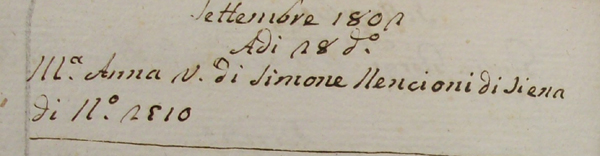 Settembre 1801
Adi 18 d.º
M.ª Anna V. di Simone Nencioni di Siena
di N.º 1510